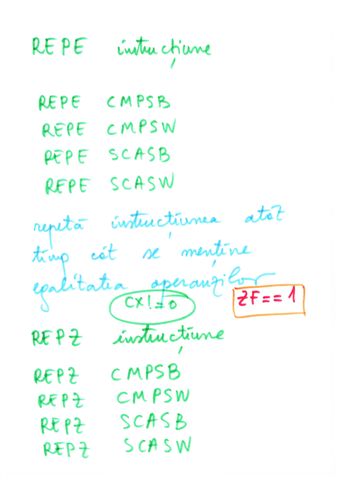 REPE instrucțiune
REPE CMPSB
REPE CMPSW
REPE SCASB
REPE SCASW
repetă instrucțiunea atât
timp cât se menține
egalitatea operanzilor
CX!=0 ZF==1
REPZ instrucțiune
REPZ CMPSB
REPZ CMPSW
REPZ SCASB
REPZ SCASW